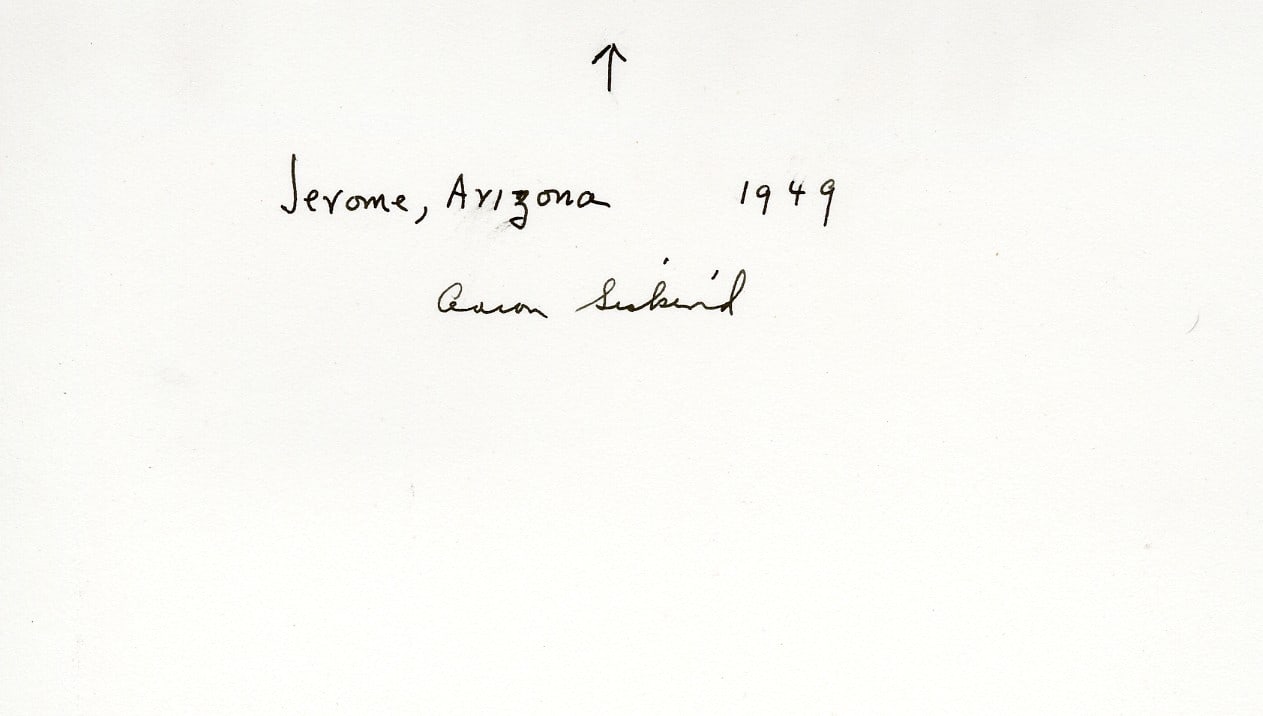 ↑
Jerome, Arizona 1949
Aaron Siskind